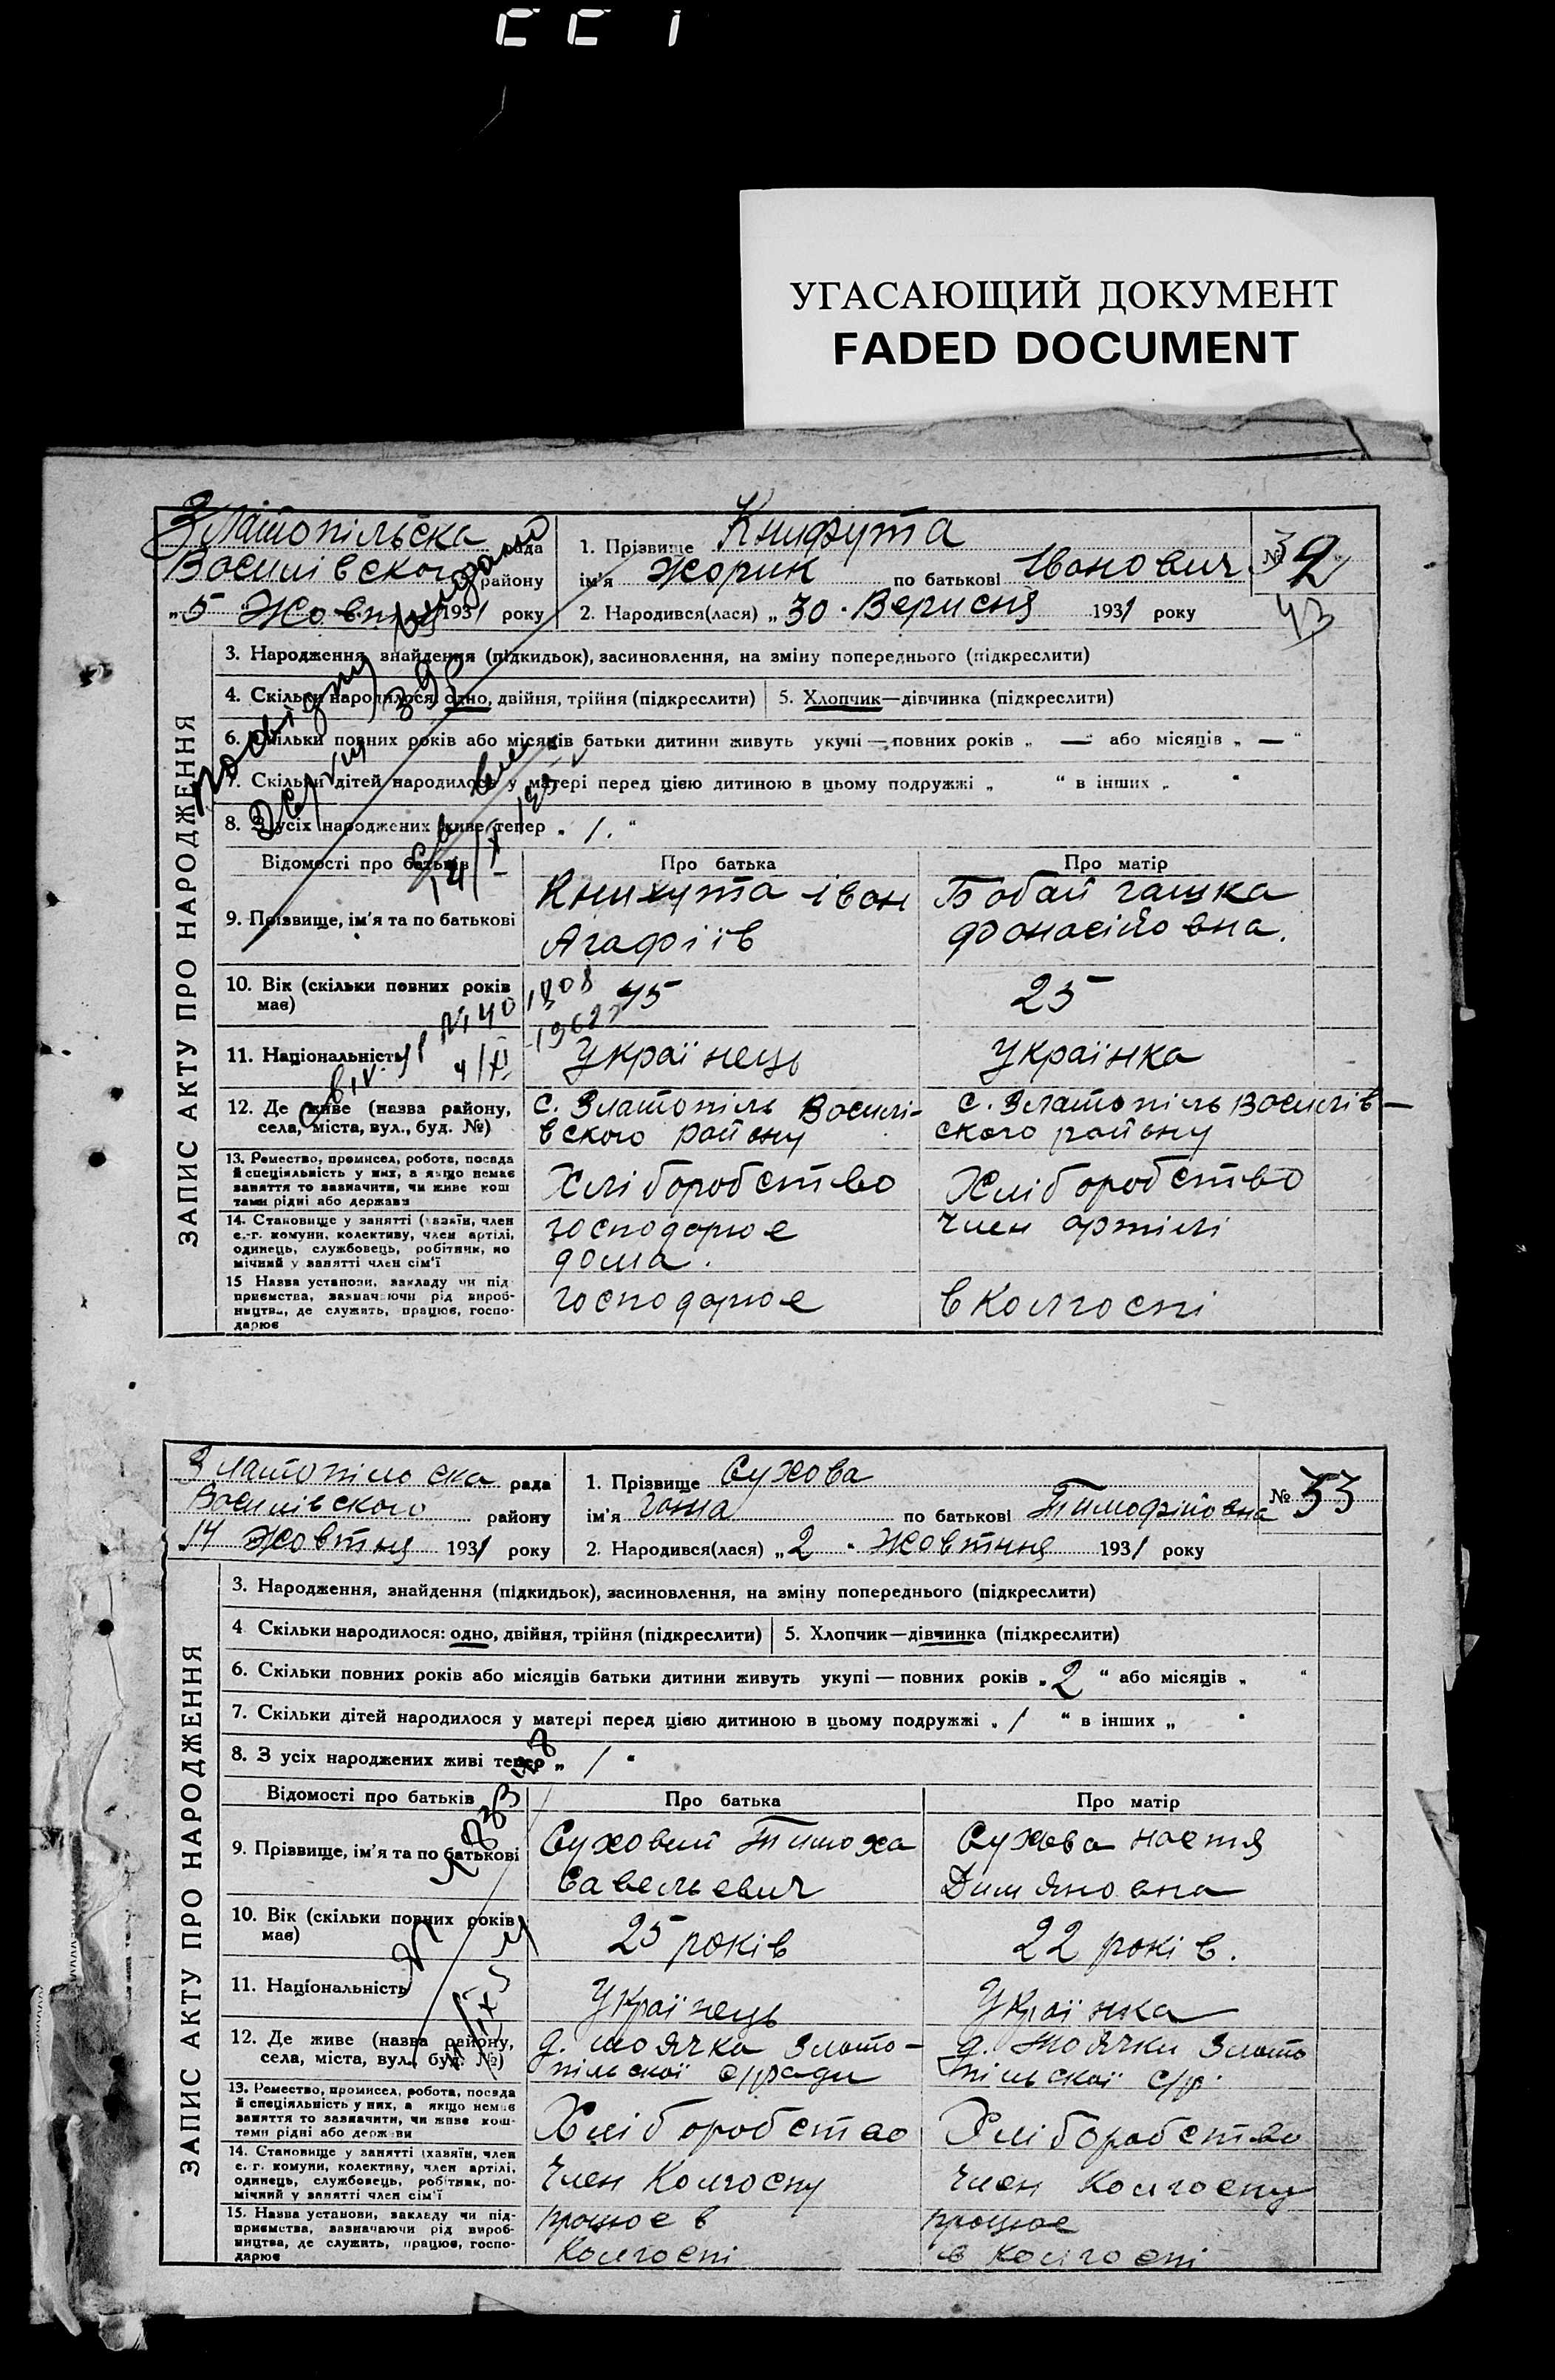 УГАСАЮЩИЙ ДОКУМЕНТ
FADED DOCUMENT
Златопільска рада
Восилівского району
„5 Жовтня 1931 року
1. Прізвище Книфута
ім'я Жорик по батькові Іванович
2. Народився(лася) „30 Вересня 1931 року
№ 32
43
ЗАПИС АКТУ ПРО НАРОДЖЕННЯ
3. Народження, знайдення (підкидьок), засиновлення, на зміну попереднього (підкреслити)
4. Скільки народилося: одно, двійня, трійня (підкреслити) 5. Хлопчик—дівчинка (підкреслити)
6. Скільки повних років або місяців батьки дитини живуть укупі — повних років „ — “ або місяців „ — “
7. Скільки дітей народилося у матері перед цією дитиною в цьому подружжі „ “ в інших „ “
8. З усіх народжених живе тепер „ 1. “
Відомості про батьків Про батька Про матір
9. Прізвище, ім'я та по батькові
Книхута іван
Агафіїв
Бобай гашка
фонасійовна.
10. Вік (скільки повних років має)
1908
45
25
№ 40
11. Національність
Українець
Українка
12. Де живе (назва району, села, міста, вул., буд. №)
с. Златопіль Восилі-
вского району
с. Златопіль Восилів—
ского району
13. Ремество, промисел, робота, посада
й спеціяльність у них, а якщо немає
заняття то зазначити, чи живе кош
тами рідні або держави
Хліборобство
Хліборобство
14. Становище у занятті (хазяїн, член
с.-г. комуни, колективу, член артілі,
одинець, службовець, робітник, по
мічний у занятті член сім'ї
господорює
дома.
член артілі
15 Назва установи, закладу чи під
приємства, зазначаючи рід вироб-
ництва, де служить, працює, госпо-
дарює
господорює
в колгоспі
Златопільска рада
Восилівского району
14 Жовтня 1931 року
1. Прізвище Сухова
ім'я ганна по батькові Тимофійовна
2. Народився(лася) „2 “ Жовтння 1931 року
№ 33
ЗАПИС АКТУ ПРО НАРОДЖЕННЯ
3. Народження, знайдення (підкидьок), засиновлення, на зміну попереднього (підкреслити)
4 Скільки народилося: одно, двійня, трійня (підкреслити) 5. Хлопчик—дівчинка (підкреслити)
6. Скільки повних років або місяців батьки дитини живуть укупі — повних років „2 “ або місяців „ “
7. Скільки дітей народилося у матері перед цією дитиною в цьому подружжі „ 1 “ в інших „ “
8. З усіх народжених живі тепер „ 1 “
Відомості про батьків Про батька Про матір
9. Прізвище, ім'я та по батькові
Суховий Тимоха
Савельевич
Сухова настя
Димяновна
10. Вік (скільки повних років має)
25 років
22 років.
11. Національність
Українець
Українка
12. Де живе (назва району,
села, міста, вул., буд. №)
д. моячка Злато-
пільскої с/ради
д. моячки Злато
пільскої с/р.
13. Ремество, промисел, робота, посада
й спеціяльність у них, а якщо немає
заняття то зазначити, чи живе кош-
тами рідні або держави
Хліборобство
Хліборобство
14. Становище у занятті (хазяїн, член
с.-г. комуни, колективу, член артілі,
одинець, службовець, робітник, по-
мічний у занятті член сім'ї
Член Колгоспу
Член Колгоспу
15. Назва установи, закладу чи під-
приємства, зазначаючи рід вироб-
ництва, де служить, працює, госпо-
дарює
працює в
Колгоспі
працює
в колгоспі